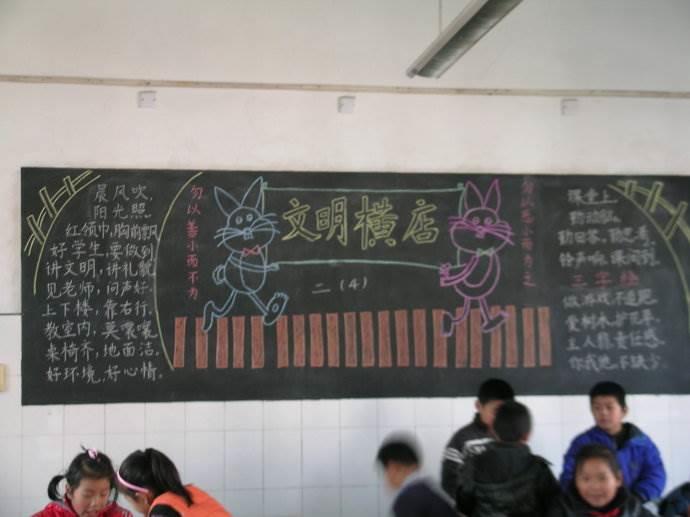 晨风吹，
阳光照，
红领巾，胸前飘
好学生，要做到
讲文明，讲礼貌
见老师，问声好。
上下楼，靠右行。
教室内，莫嚷嚷
桌椅齐，地面洁。
好环境，好心情。
勿以善小而不为
文明横店
二（4）
勿以恶小而为之
课堂上
勤动脑
勤回答，勤思考，
铃声响，课间到。
三字经
做游戏，不追跑
爱树木，护花草，
主人翁，责任感，
你我他，不缺少。